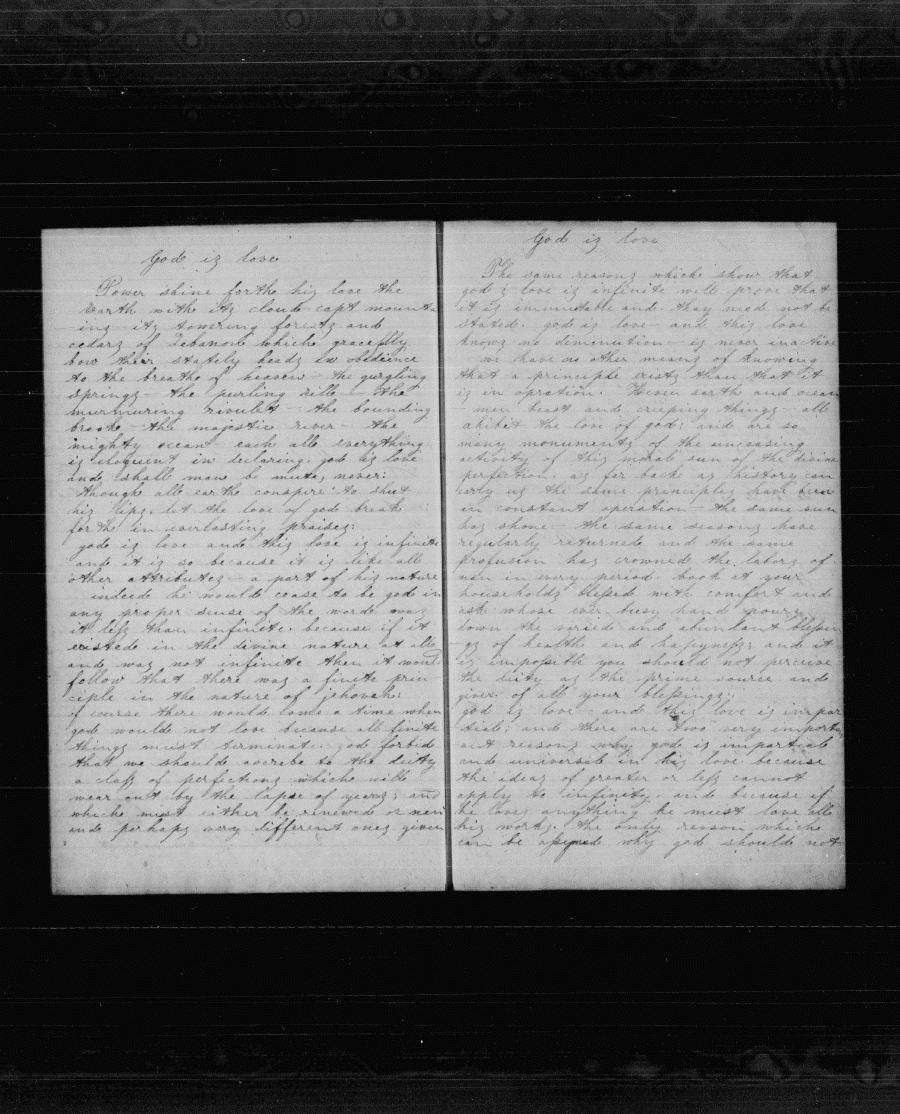 God iz love
Power shine forthe hiz love the
Earth withe itz cloud-capt mounta
inz itz towering forestz and
cedarz of Lebanon which gracefly
bow their stately heedz in obedience
to the breathe of heaven - the gurgling
springz - the purling rille - the
murmuring rivulet - the bounding
brooke - the majestic river - the
mighty ocean each alle everything
iz eloquent in declaring god iz love
ande shall man be mute, never:
though alle earthe conspire to shut
hiz lipz. let the love of god breake
forthe in everlasting praisez:
god iz love and this love iz infinite
and it iz so because it iz like all
other attributez - a part of hiz nature
indeede he would cease to be god in
any proper sense of the worde waz
it lefz than infinite. because if it
existede in the divine nature at alle
ande waz not infinite then it would
follow that there waz a finite prin-
ciple in the nature of jehovah:
of course there woulde come a time when
god woulde not love because all finite
thingz must terminate god forbide
that we shoulde ascrebe to the deity
a clafz of perfectionz which will
wear out by the lapse of yearz; and
which must either be renewed or new
ande perhapz very different onez given
God iz love
The same reasonz which show that
god'z love iz infinite will prove that
it iz immutable and thay need not be
stated. god iz love - and this love
knowz no diminution - iz never inactive
we have no other meanz of knowing
that a principle existz than that it
iz in opration. Heven earth and ocean
- men beast and creeping thingz - all
exhibit the love of god; and are so
many monumentz of the unceasing
activity of this moral sun of the divine
perfection. az far back az history can
carly uz the same principlez have been
in constant operation - the same sun
haz shone - the same seasonz have
regularly returned and the same
profusion haz crowned the laborz of
men in every period. look at your
householdz blefsed with comfort and
ask whose ever busy hand pourz
down the varied and abundant blefsin
gz of health and hapynefz; and it
iz impofsible you should not perceive
the deity az the prime source and
giver of all your blefsingz:
god iz love - and this love iz impar
tial; and there are two very importa
ant reasonz why god iz impartial
and universile in hiz love. because
the ideaz of greater or lefz cannot
apply to infinity. and because if
he lovez anything he must love alle
hiz workz. the only reason which
can be afsigned why god shoulde not